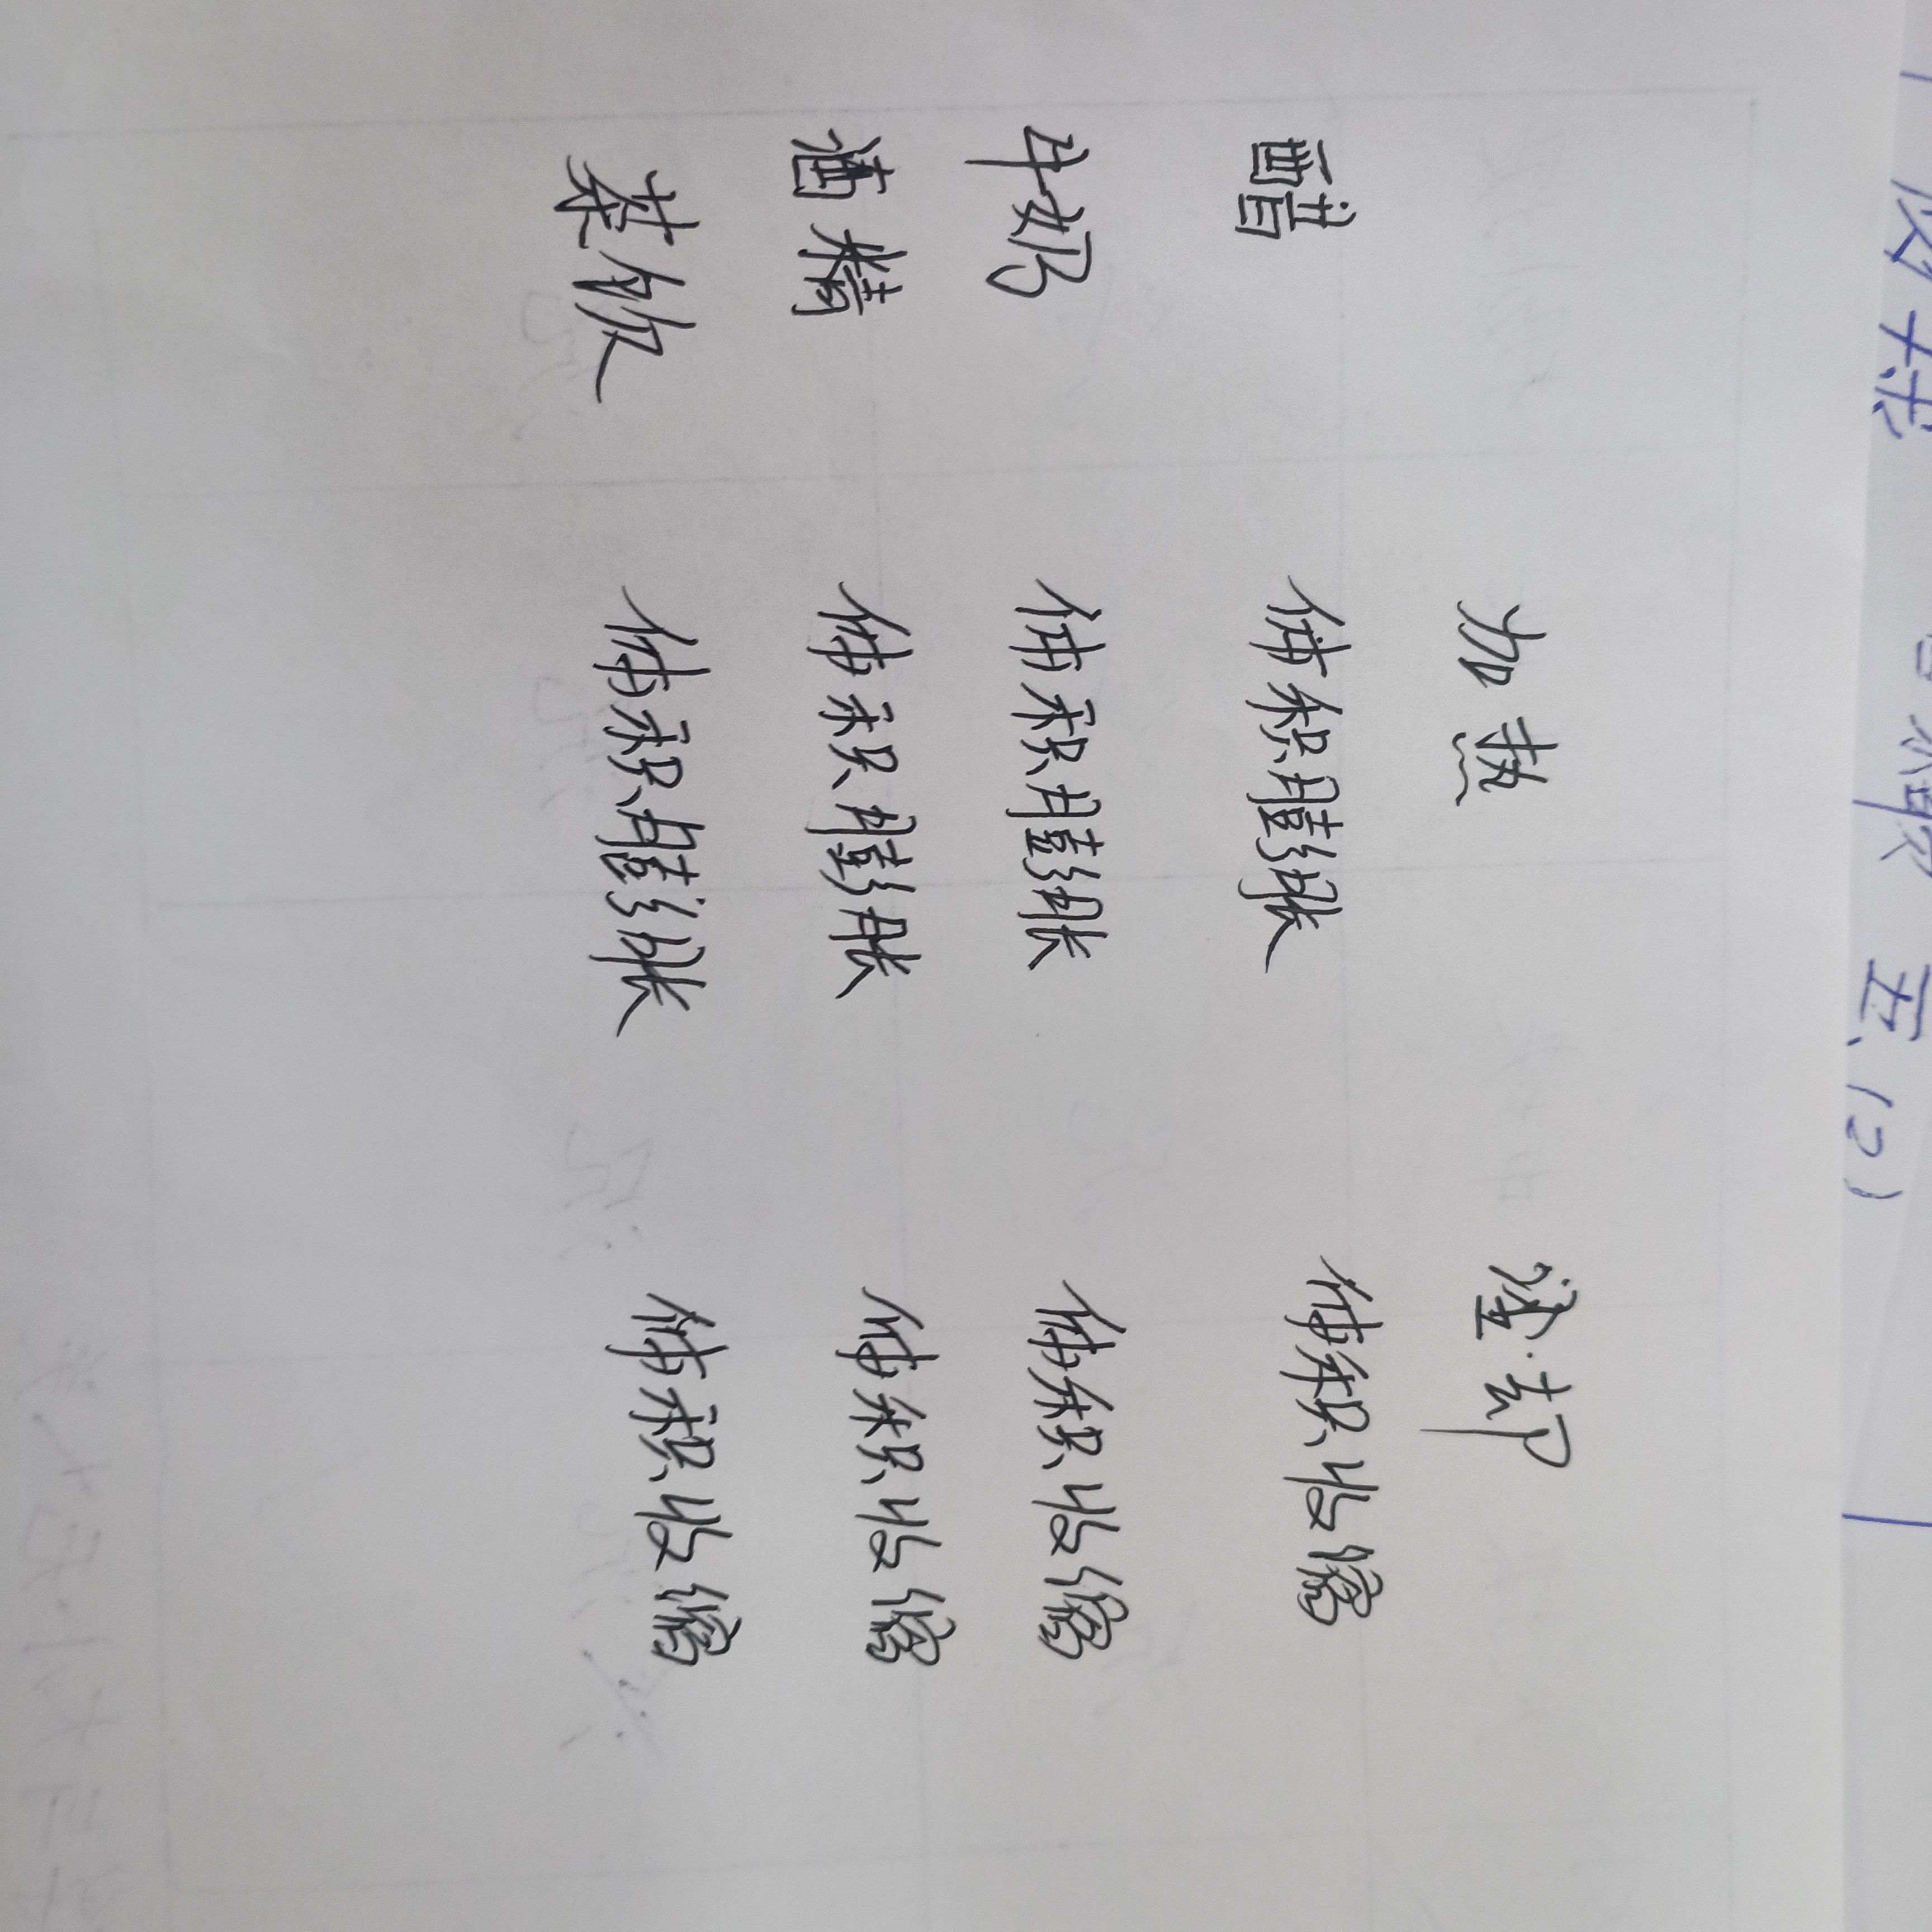 五(2)
加热 冷却
醋 体积膨胀 体积收缩
牛奶 体积膨胀 体积收缩
酒精 体积膨胀 体积收缩
茶饮 体积膨胀 体积收缩